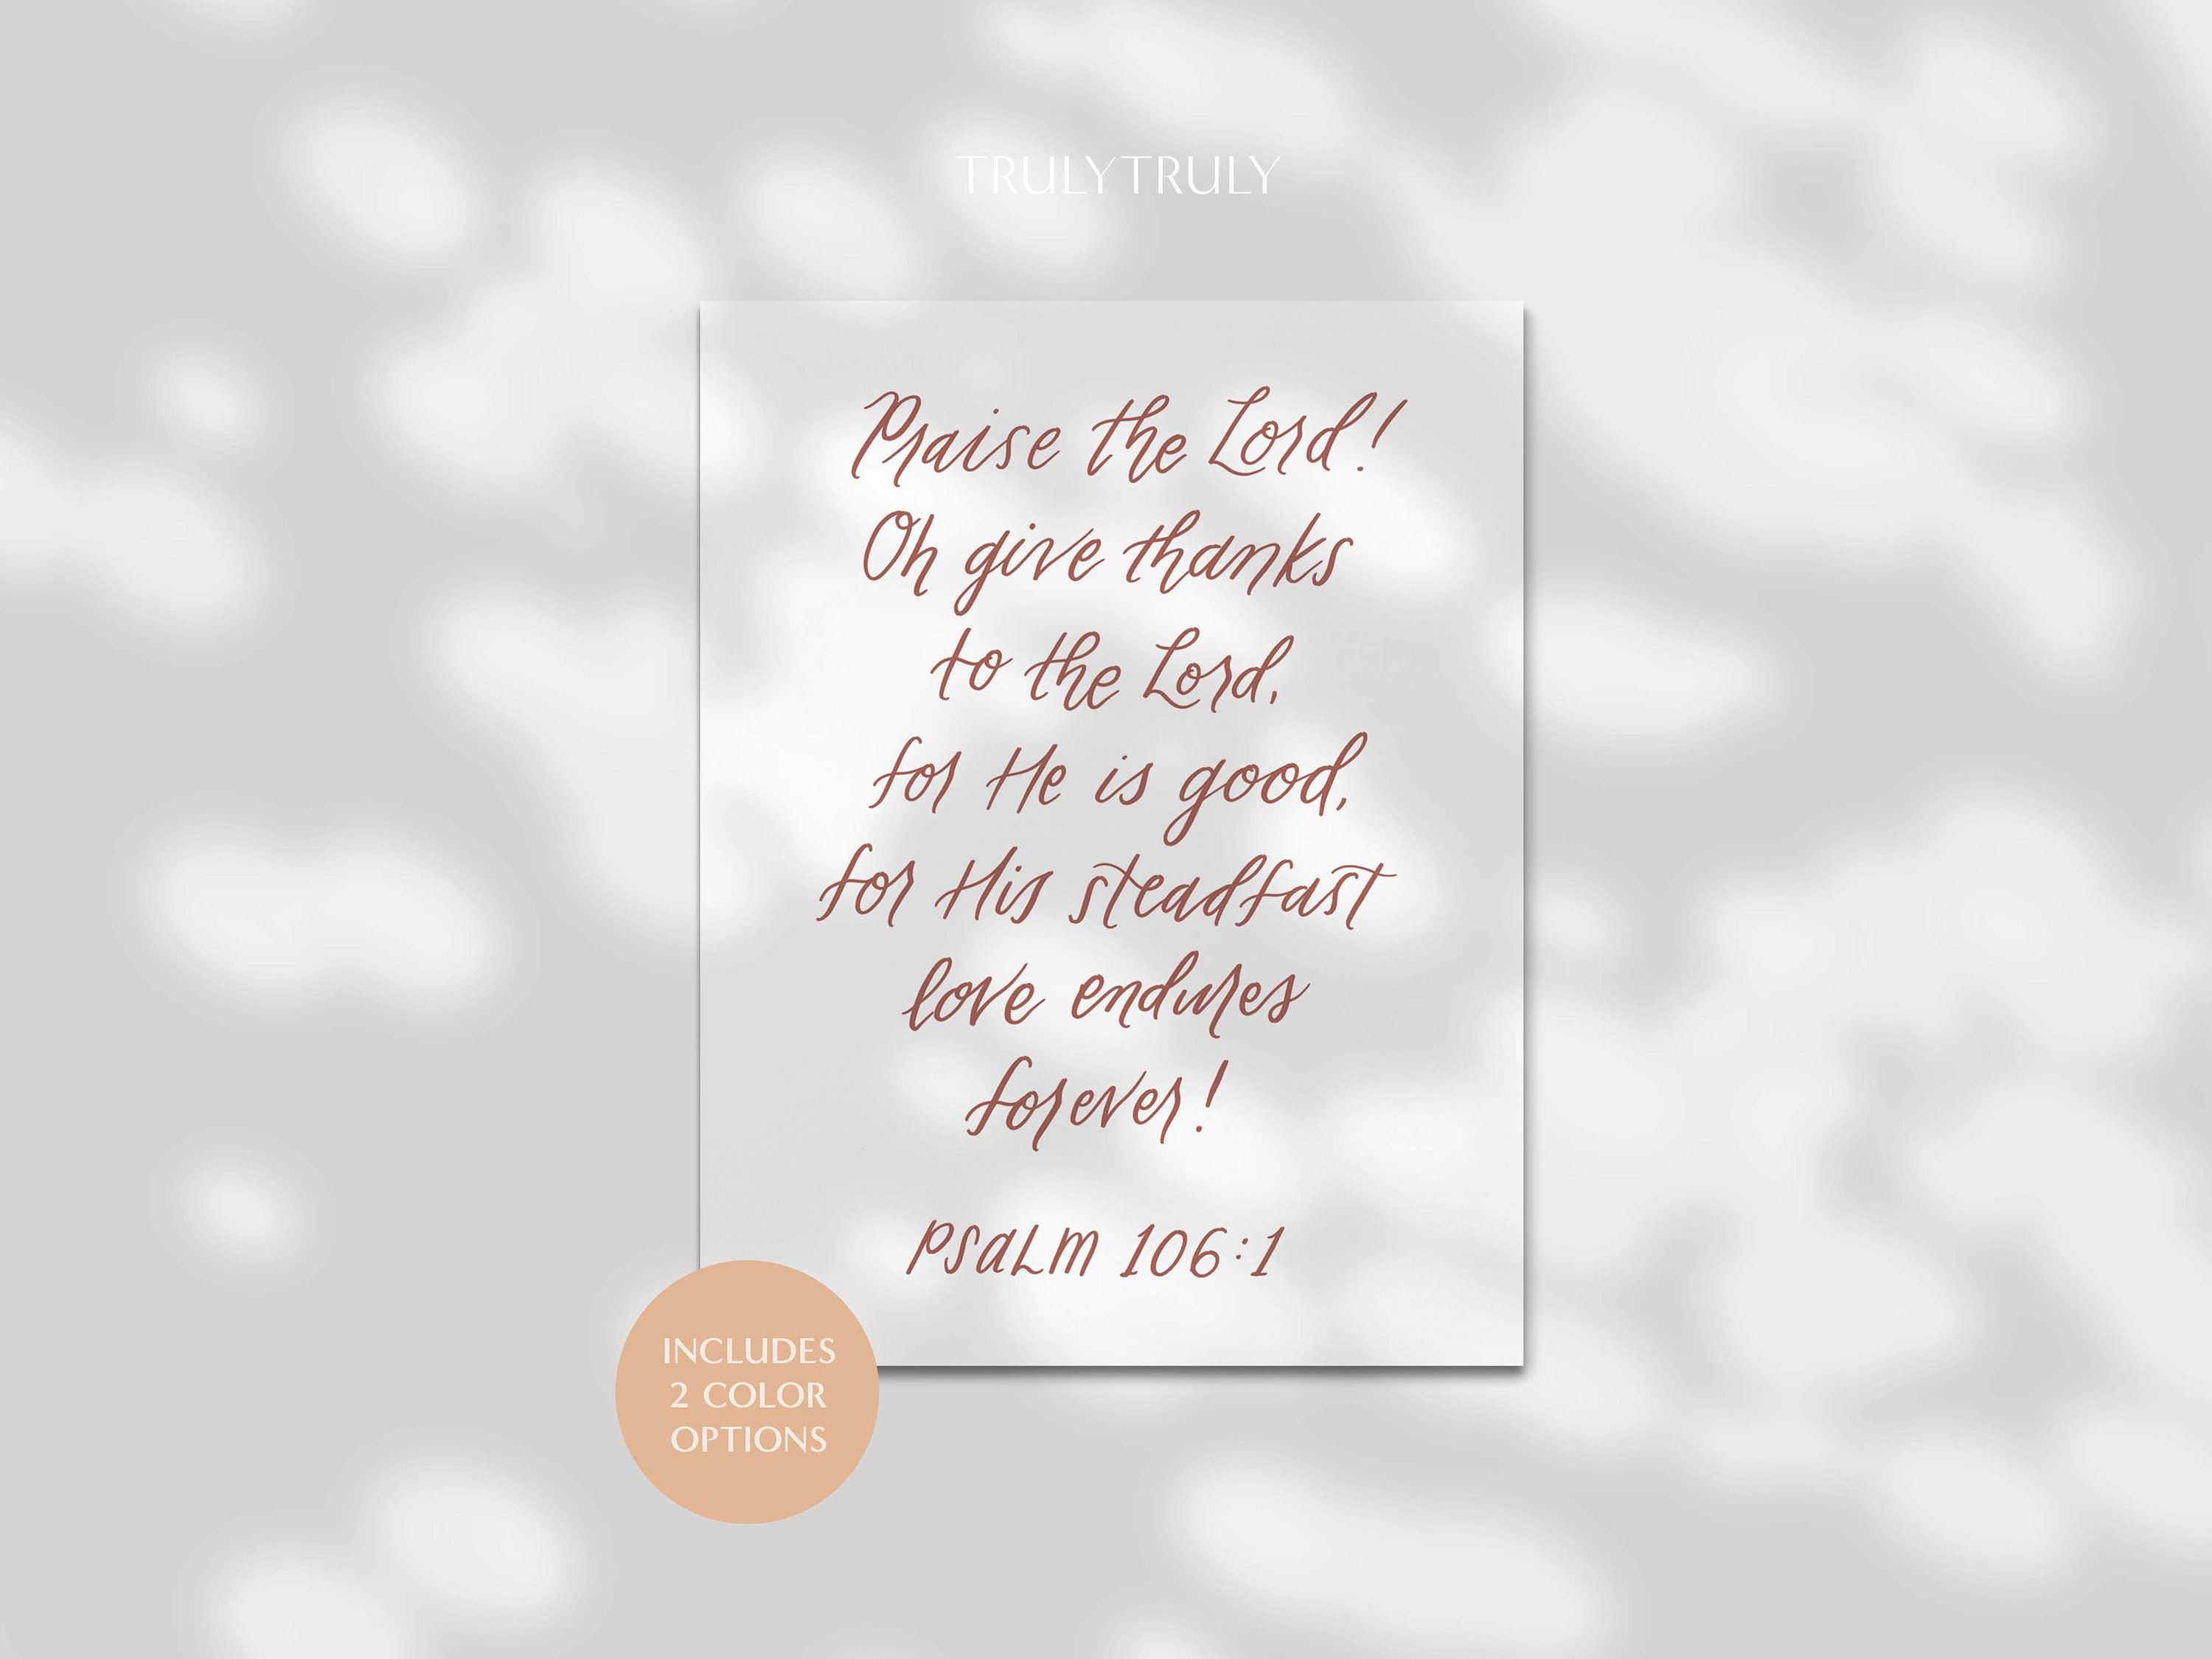 TRULYTRULY
Praise the Lord!
Oh give thanks
to the Lord,
for He is good,
for His steadfast
love endures
forever!
Psalm 106:1
INCLUDES
2 COLOR
OPTIONS